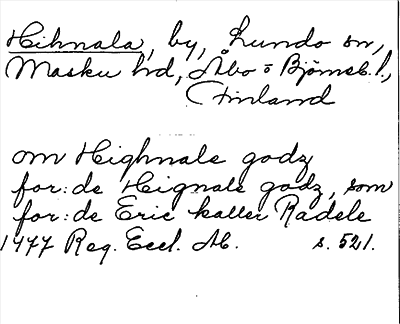 Hihnala, by, Lundo sn,
Masku hd, Åbo o Björneb. l.,
Finland
om Highnale godz
for: de Heignale godz, som
for: de Eric kaller Radele
1477 Reg. Eccl. Ab. s. 521.